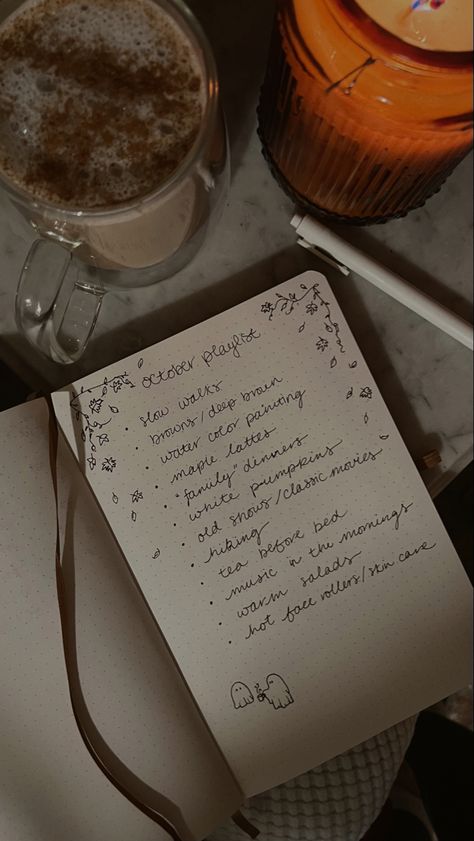 october playlist
• slow walks
• browns/deep brown
• water color painting
• maple lattes
• "family" dinners
• white pumpkins
• old shows/classic movies
• hiking
• tea before bed
• music in the mornings
• warm salads
• hot face rollers/skin care